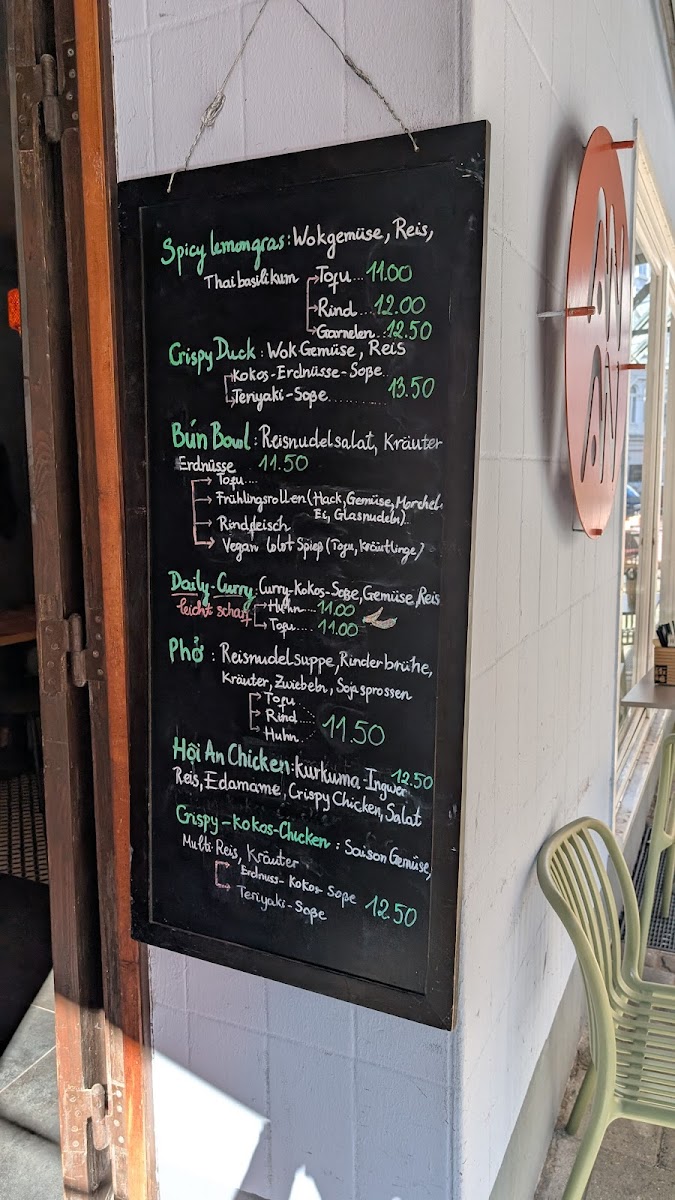 Spicy lemongras: Wokgemüse, Reis,
Thaibasilikum Tofu... 11.00
Rind.... 12.00
Garnelen..: 12.50
Crispy Duck: Wok Gemüse, Reis
Kokos-Erdnüsse-Soße
Teriyaki-Soße.......... 13.50
Bún Bowl: Reisnudelsalat, Kräuter
Erdnüsse 11.50
Tofu....
Frühlingsrollen (Hack, Gemüse, Morchel
Ei, Glasnudeln)
Rindfleisch
Vegan lolot Spieß (Tofu, Kräutlinge)
Daily-Curry: Curry-Kokos-Soße, Gemüse, Reis
leicht scharf Huhn.... 11.00
Tofu.... 11.00
Phở: Reisnudelsuppe, Rinderbrühe,
Kräuter, Zwiebeln, Sojasprossen
Tofu
Rind....
Huhn 11.50
Hội An Chicken: Kurkuma-Ingwer 12.50
Reis, Edamame, Crispy Chicken, Salat
Crispy-Kokos-Chicken: Saison Gemüse,
Multi-Reis, Kräuter
Erdnuss-Kokos-Soße
Teriyaki-Soße 12.50